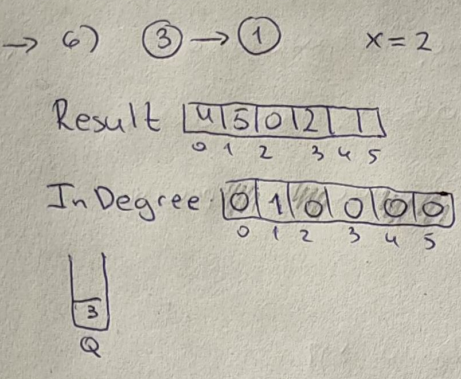 → 6) 3 → 1 x = 2
Result 4 5 0 2
0 1 2 3 4 5
InDegree 0 1 0 0 0 0
0 1 2 3 4 5
3
Q